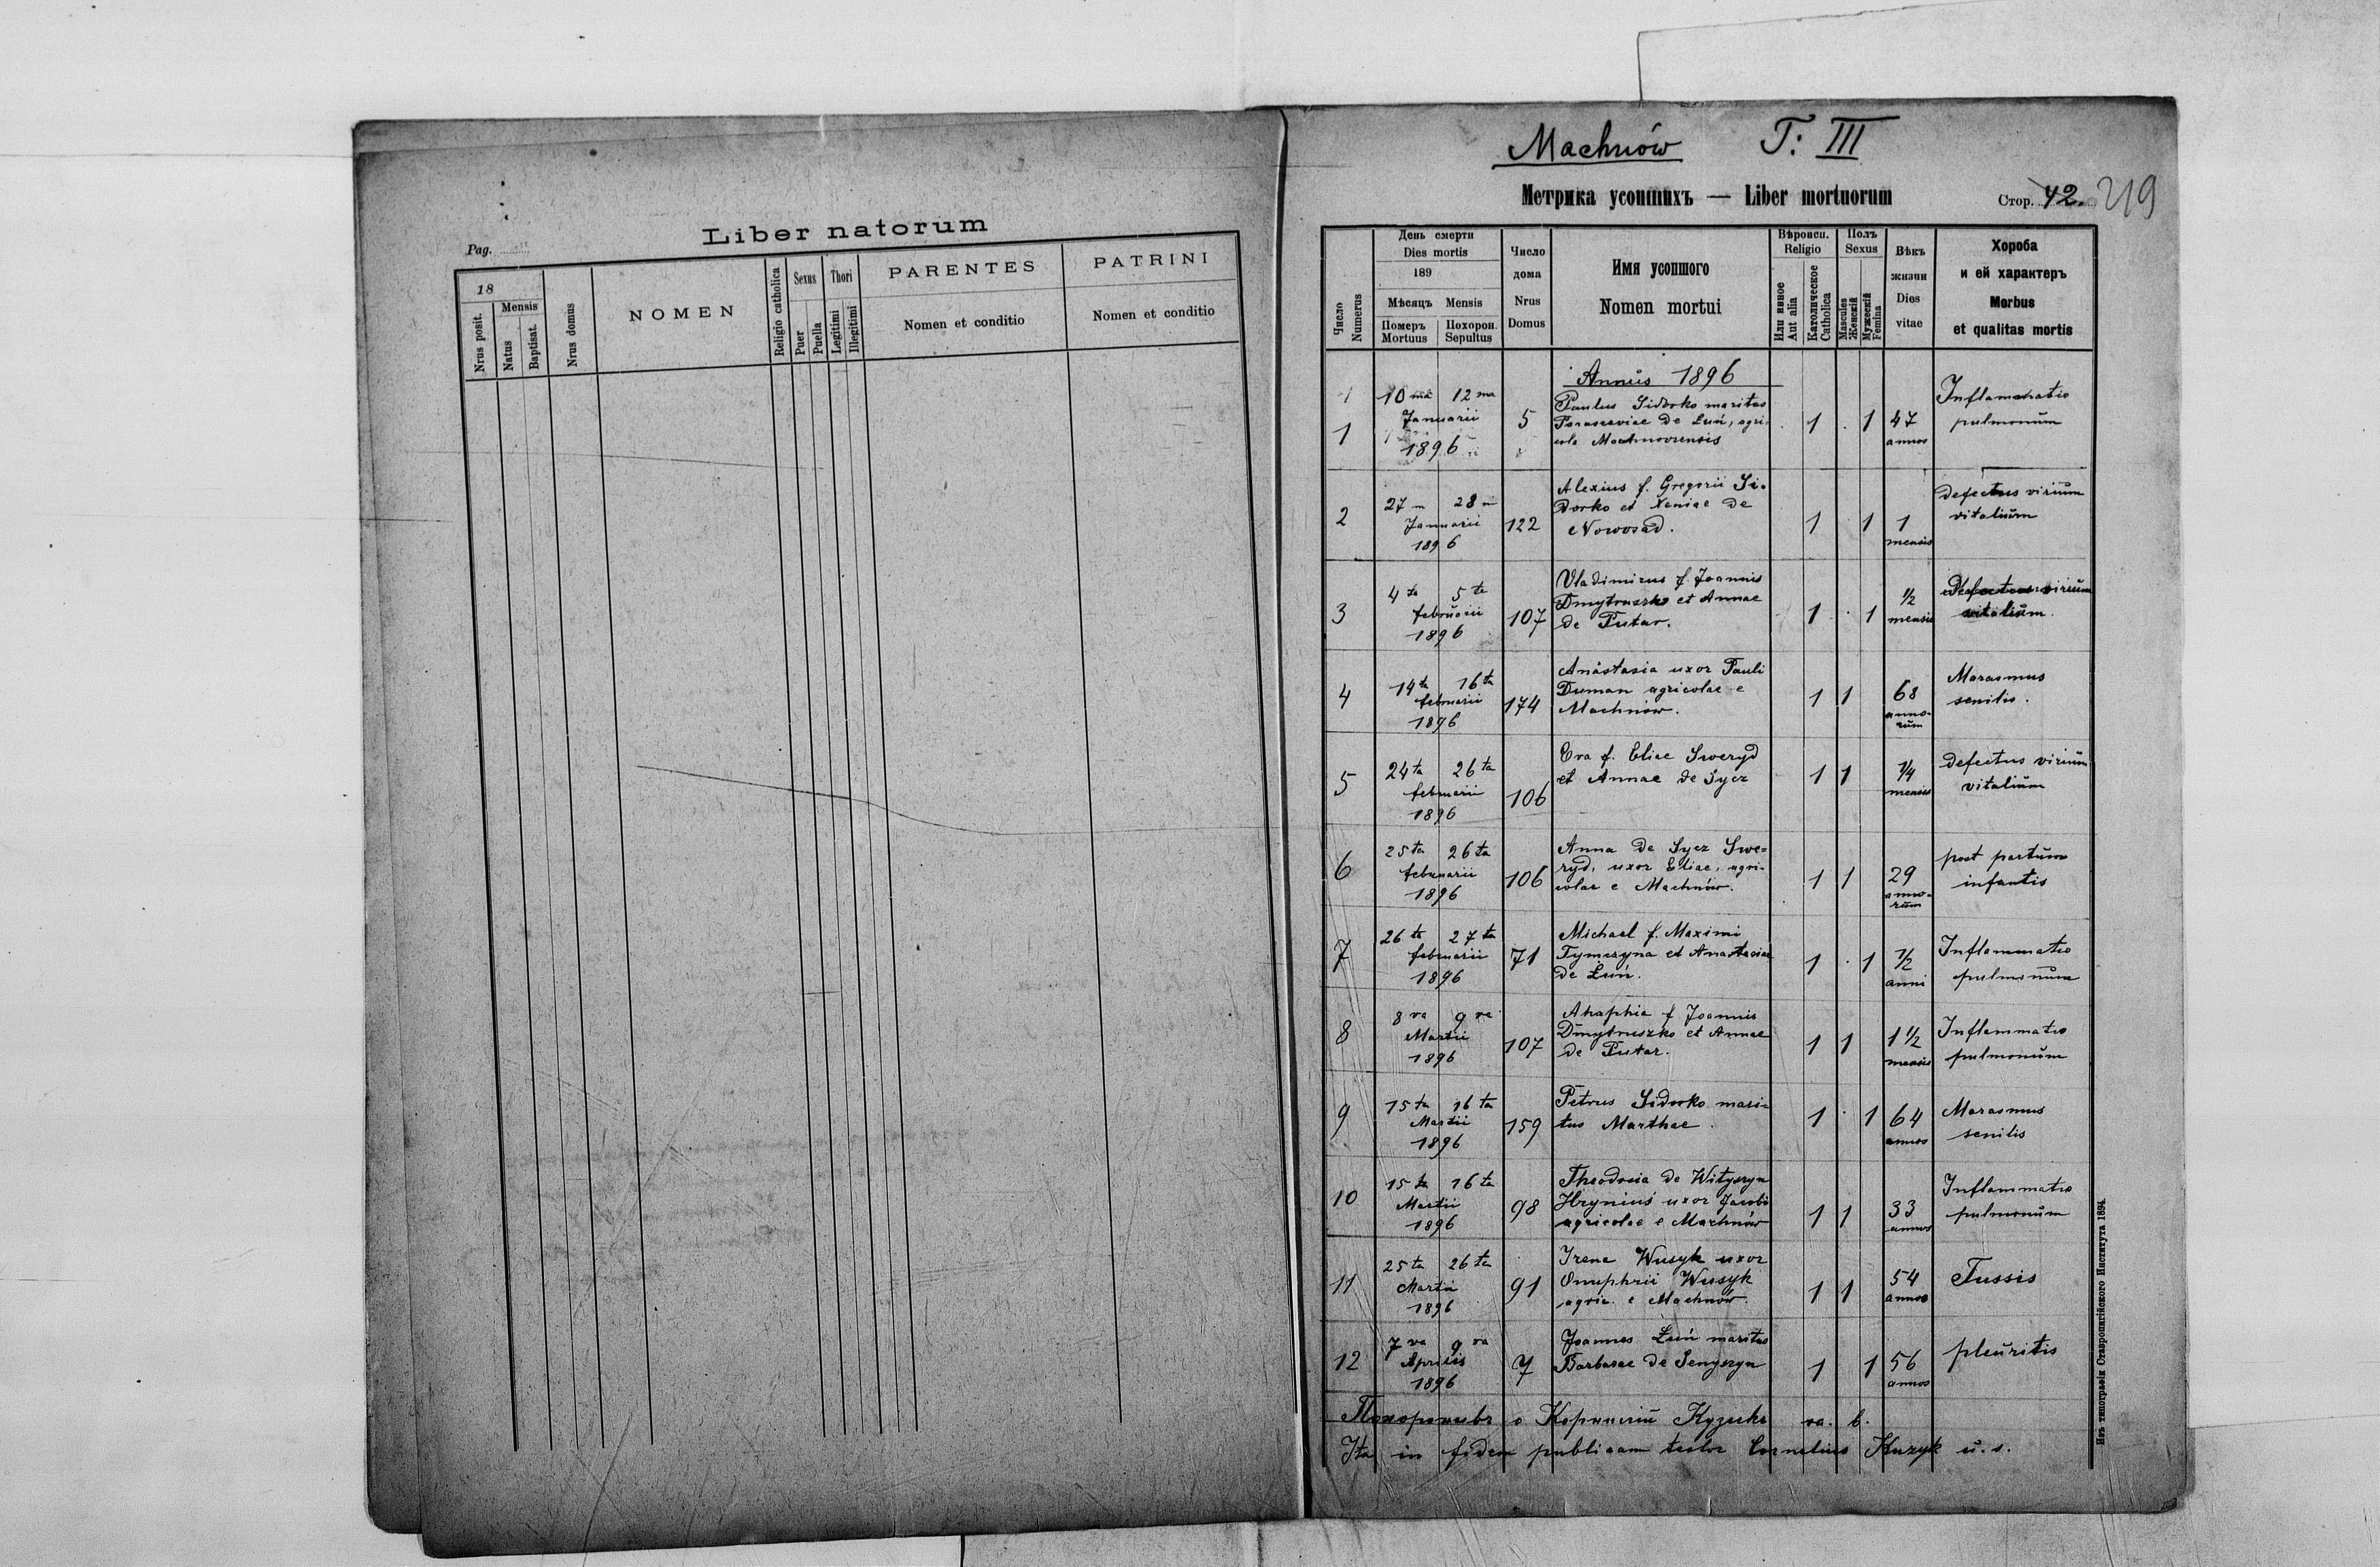 Pag.
Liber natorum
18
Nrus posit.
Mensis
Natus
Baptisat.
Nrus domus
NOMEN
Religio catholica
Sexus
Puer
Puella
Thori
Legitimi
Illegitimi
PARENTES
Nomen et conditio
PATRINI
Nomen et conditio
Machnów T: III
Метрика усопшихъ — Liber mortuorum
Стор. 42. 219
Число
Numerus
День смерти
Dies mortis
189
Мѣсяцъ Mensis
Померъ
Mortuus
Похорон.
Sepultus
Число
дома
Nrus
Domus
Имя усопшого
Nomen mortui
Вѣроисп.
Religio
Или инное
Aut alia
Католическое
Catholica
Полъ
Sexus
Masculus
Женскій
Мужескій
Femina
Вѣкъ
жизни
Dies
vitae
Хороба
и ей характеръ
Morbus
et qualitas mortis
Annus 1896
1 10 ma 12 ma
Januarii
1896
5
Paulus Sidorko maritus
Parasceviae de Łuń, agri-
cola Machnoviensis
1 1 47
annos
Inflammatio
pulmonum
2 27 28
Januarii
1896
122
Alexius f. Gregorii Si-
dorko et Xeniae de
Nowosad.
1 1 1
mensis
defectus virium
vitalium
3 4 ta 5 ta
februarii
1896
107
Vladimirus f. Joannis
Dmytruszko et Annae
de Putar.
1 1 1/2
mensis
defectus virium
vitalium
4 14 ta 16 ta
februarii
1896
174
Anastasia uxor Pauli
Duman agricolae e
Machnów.
1 1 68
anno-
rum
Marasmus
senilis.
5 24 ta 26 ta
februarii
1896
106
Eva f. Eliae Sweryd
et Annae de Sycz
1 1 1/4
mensis
defectus virium
vitalium
6 25 ta 26 ta
februarii
1896
106
Anna de Sycz Swe-
ryd, uxor Eliae, agri-
colae e Machnów.
1 1 29
anno-
rum
post partum
infantis
7 26 ta 27 ta
februarii
1896
71
Michael f. Maximi
Tymczyna et Anastasiae
de Łuń.
1 1 1/2
anni
Inflammatio
pulmonum
8 8 va 9 va
Martii
1896
107
Ahaphia f Joannis
Dmytruszko et Annae
de Putar.
1 1 1 1/2
mensis
Inflammatio
pulmonum
9 15 ta 16 ta
Martii
1896
159
Petrus Sidorko mari-
tus Marthae.
1 1 64
annos
Marasmus
senilis
10 15 ta 16 ta
Martii
1896
98
Theodosia de Wityszyn
Hryniuś uxor Jacobi
agricolae e Machnów
1 1 33
annos
Inflammatio
pulmonum
11 25 ta 26 ta
Martii
1896
91
Irene Wusyk uxor
Onuphrii Wusyk
agric. e Machnów.
1 1 54
annos
Tussis
12 7 va 9 va
Aprilis
1896
7
Joannes Łuń maritus
Barbarae de Senyszyn
1 1 56
annos
pleuritis
Похоронивъ о Корнилій Кузыкъ
Ita in fidem publicam testor Cornelius Kuzyk
Изъ типографіи Ставропигійского Института 1894.